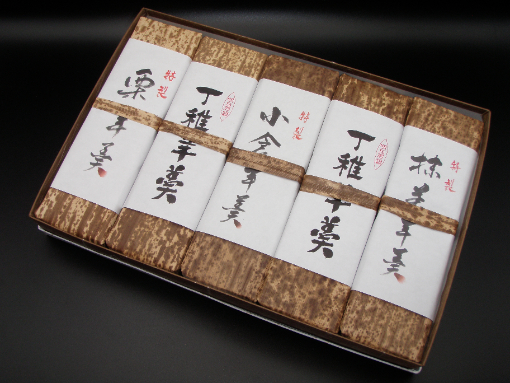 特製
栗羊羹
丁稚羊羹
特製
小倉羊羹
丁稚羊羹
特製
抹茶羊羹